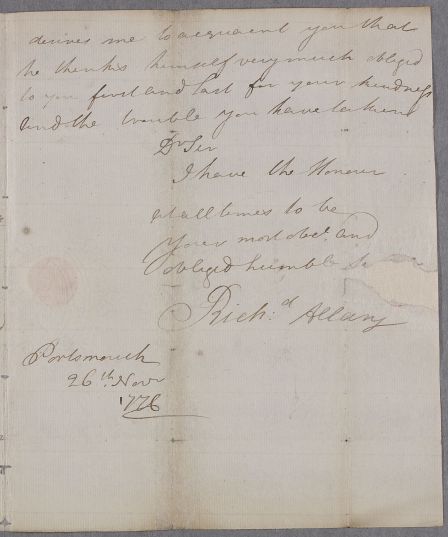 desires me to acquaent you that
he thinks himself very much obliged
to you first and last for your kindness
and the trouble you have taken
Dr Sir
I have the Honour
at all times to be
Your most obed. and
obliged humble Se
Rich.d
Portsmouth
26th Novr
1776